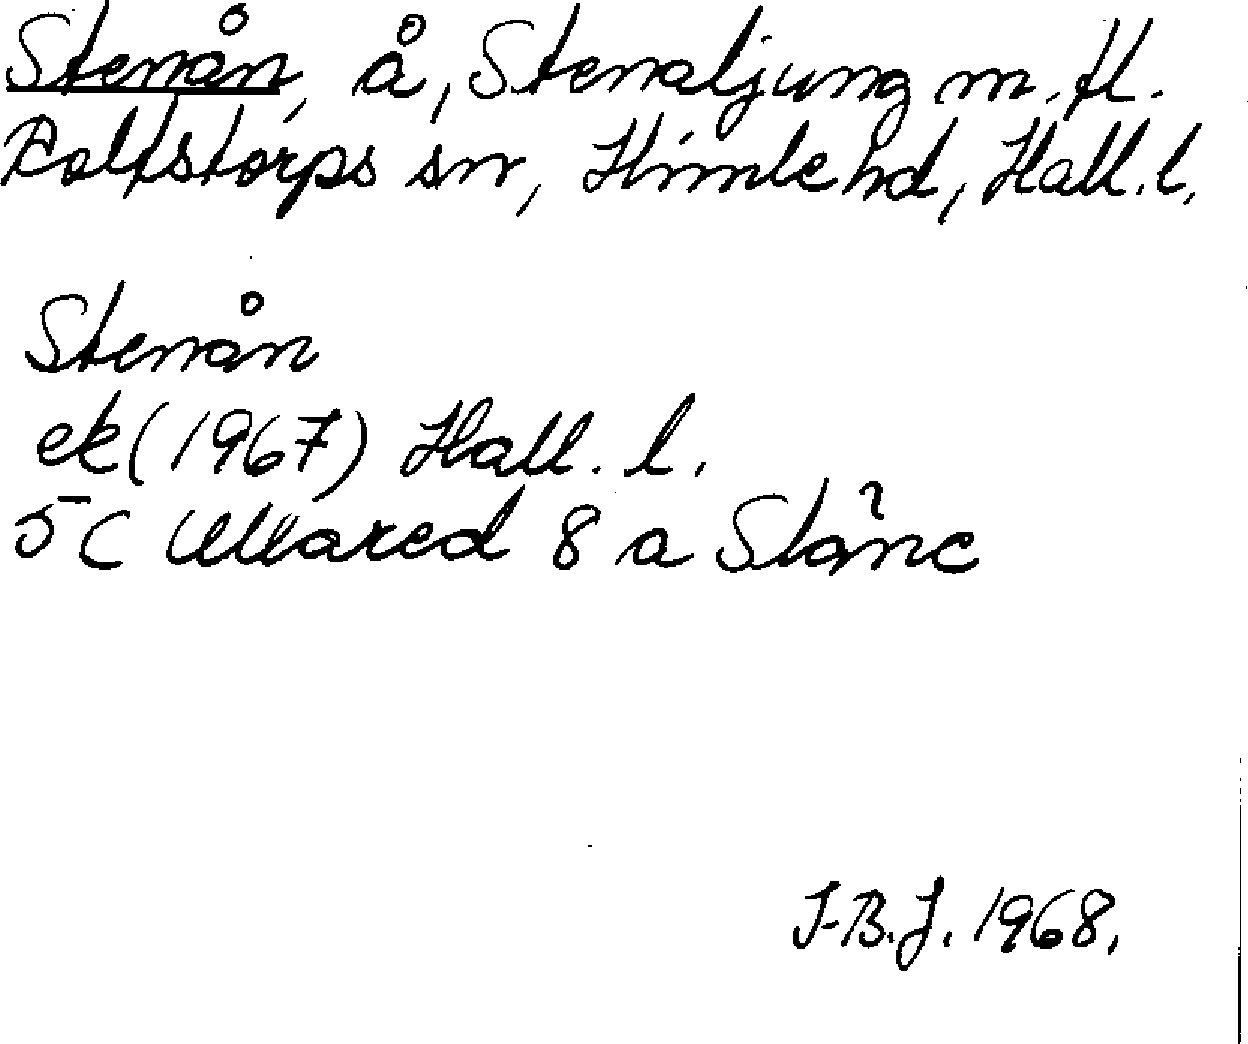 Stenån, å, Stenaljung m.fl.
Rolfstorps sn, Himle hd, Hall. l.
Stenån
ek (1967) Hall. l.
5C Ullared 8 a
J-B.J. 1968.